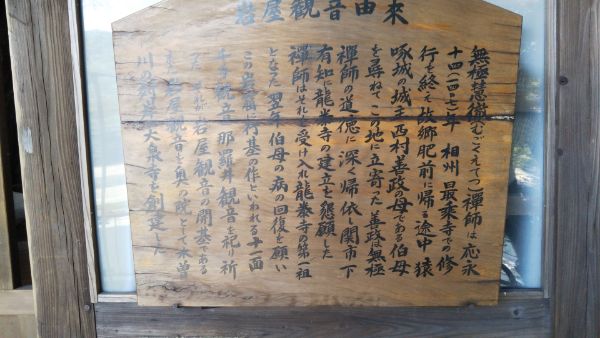 岩屋観音由来
無極慧徹(むごくえてつ)禅師は応永
十四(一四〇七)年 相州 最乗寺での修
行を終え故郷肥前に帰る途中 猿
啄城の城主西村善政の母である伯母
を尋ねて この地に立寄った 善政は無極
禅師の道徳に深く帰依 関市下
有知に龍泰寺の建立を懇願した
禅師はそれを受け入れ龍泰寺の第一祖
となった 翌年 伯母の病の回復を願い
この岩窟に行基の作といわれる十一面
千手観音 那羅延 観音を祀り祈
これが岩屋観音の開基である
岩屋観音を奥の院として木曽
川の対岸に大泉寺を創建した